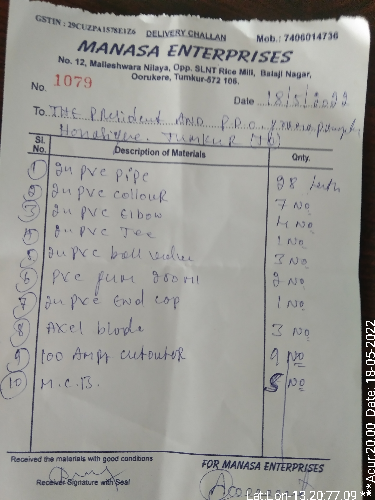 GSTIN : 29CUZPA1578E1Z6 DELIVERY CHALLAN Mob.: 7406014736
MANASA ENTERPRISES
No. 12, Malleshwara Nilaya, Opp. SLNT Rice Mill, Balaji Nagar,
Oorukere, Tumkur-572 106.
No. 1079
Date 18/5/2022
To. THE President AND P.D.O.
Tumkur
Sl. No. Description of Materials Qnty.
1 2n pvc pipe 28
2 2n pvc collour 7 No
3 2n pvc Elbow 4 No
4 2n pvc Tee 1 No
5 2n pvc ball 3 No
6 pvc gum 200ml 2 No
7 2n pvc End cap 1 No
8 Axel blade 3 No
9 100 Amp cutoutor 9 No
10 M.C.B. 5 No
Received the materials with good conditions
FOR MANASA ENTERPRISES
Receiver Signature with Seal
***Acur 20.00, Date: 18-05-2022
Lat Lon-13.20:77.09